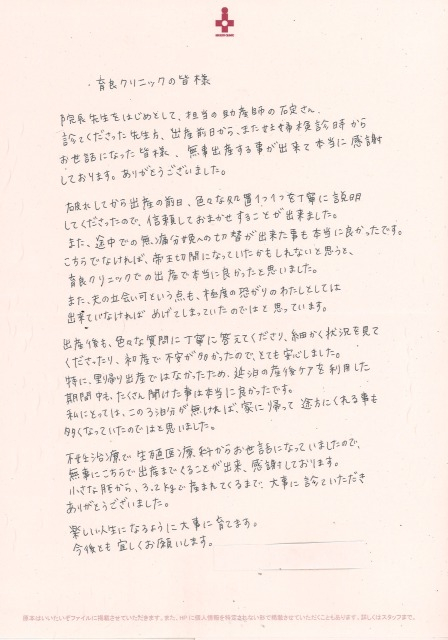 育良クリニックの皆様
院長先生をはじめとして、担当の助産師の石定さん、
診てくださった先生方、出産前日から、また妊婦検診時から
お世話になった皆様、無事出産する事が出来て本当に感謝
しております。ありがとうございました。
破水してから出産の前日、色々な処置1つ1つを丁寧に説明
してくださったので、信頼しておまかせすることが出来ました。
また、途中での無痛分娩への切替が出来た事も本当に良かったです。
こちらでなければ、帝王切開になっていたかもしれないと思うと、
育良クリニックでの出産で本当に良かったと思いました。
また、夫の立会い可という点も、極度の恐がりのわたしとしては
出来ていなければ めげてしまっていたのではと思っています。
出産後も、色々な質問に丁寧に答えてくださり、細かく状況を見て
くださったり、初産で不安が多かったので、とても安心しました。
特に、里帰り出産ではなかったため、延泊の産後ケアを利用した
期間中も、たくさん聞けた事は本当に良かったです。
私にとっては、この3泊分が無ければ、家に帰って途方にくれる事も
多くなっていたのではと思いました。
不妊治療で生殖医療科からお世話になっていましたので、
無事にこちらで出産までくることが出来、感謝しております。
小さな胚から、3.2kgで産まれてくるまで、大事に診ていただき
ありがとうございました。
楽しい人生になるように大事に育てます。
今後とも宜しくお願いします。
原本はいいたいぞファイルに掲載させていただきます。また、HPに個人情報を特定されない形で掲載させていただくこともあります。詳しくはスタッフまで。